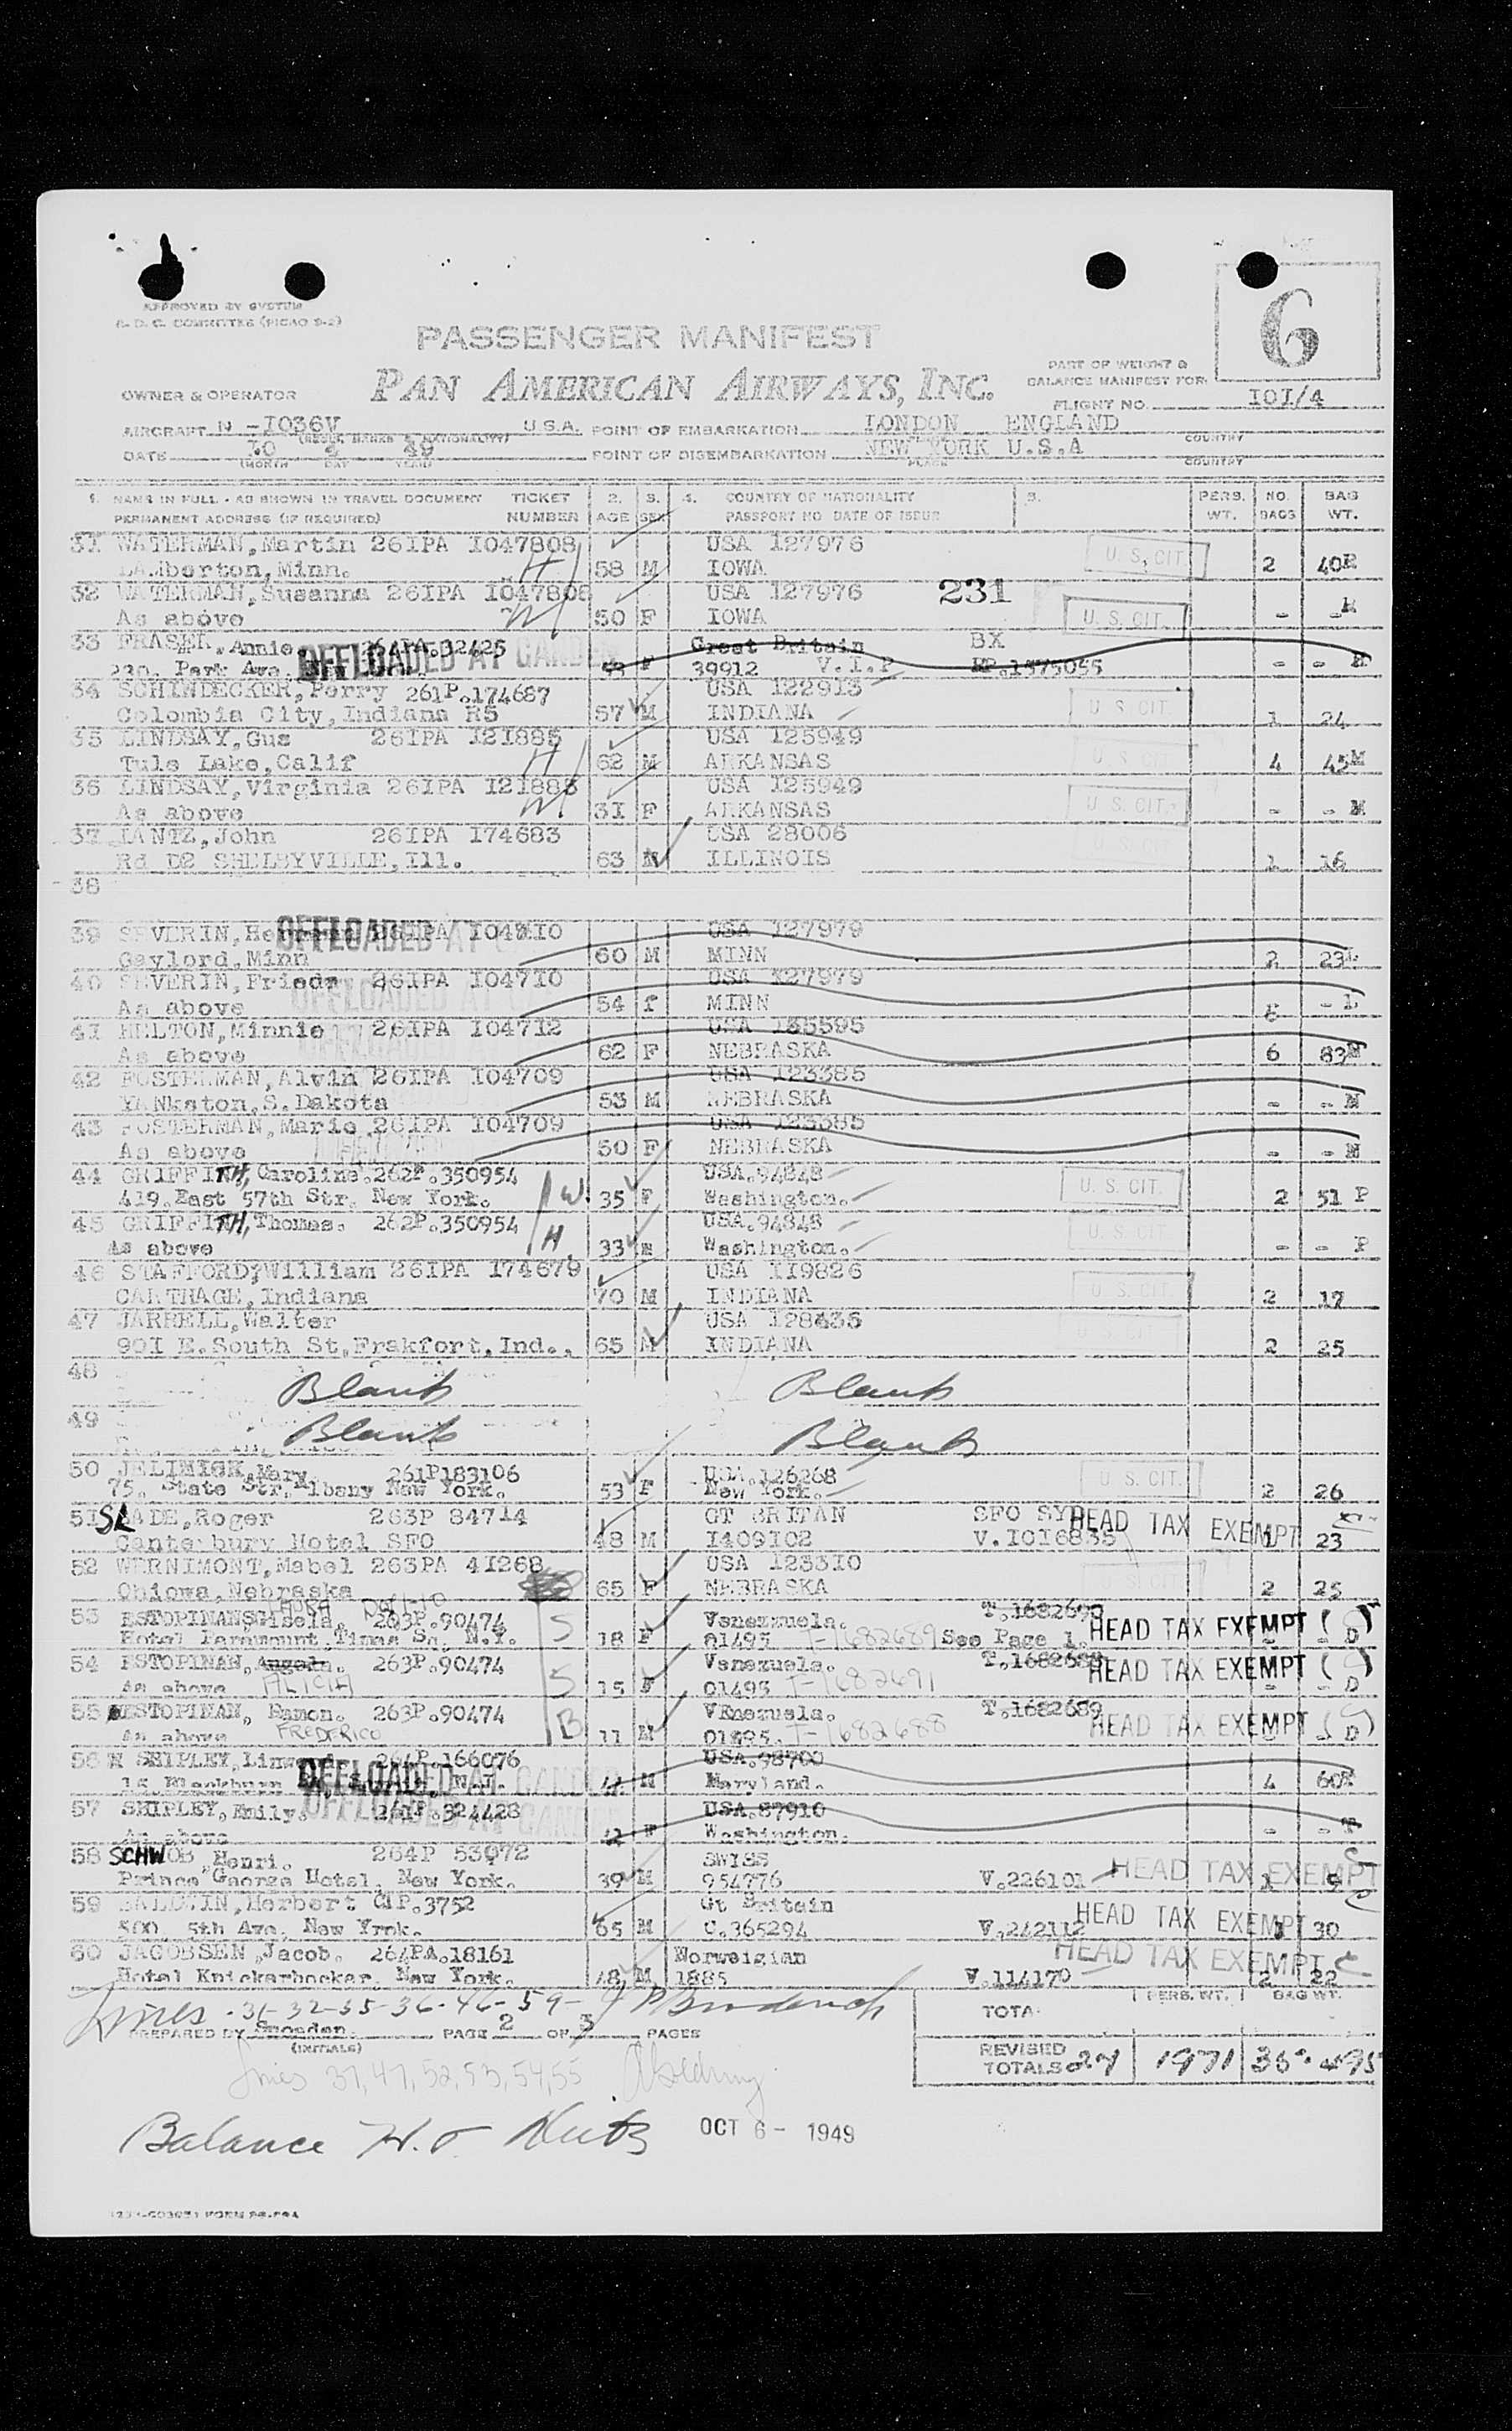 APPROVED BY SYSTEM
R. D. C. COMMITTEE (PICAO 9-2)
6
PASSENGER MANIFEST
PART OF WEIGHT &
BALANCE MANIFEST FOR:
OWNER & OPERATOR PAN AMERICAN AIRWAYS, INC.
FLIGHT NO. IOI/4
AIRCRAFT N -IO36V U.S.A. POINT OF EMBARKATION LONDON ENGLAND
(REGIS. MARKS & NATIONALITY) COUNTRY
DATE IO 4 49 POINT OF DISEMBARKATION NEW YORK U.S.A
(MONTH DAY YEAR) PLACE COUNTRY
1. NAME IN FULL - AS SHOWN IN TRAVEL DOCUMENT TICKET 2. 3. 4. COUNTRY OF NATIONALITY 5. PERS. NO. BAG
PERMANENT ADDRESS (IF REQUIRED) NUMBER AGE SEX PASSPORT NO DATE OF ISSUE WT. BAGS WT.
31 WATERMAN,Martin 26IPA I047808 USA I27976 U. S. CIT.
LAMberton,Minn. H 58 M IOWA 2 40R
32 WATERMAN,Susanna 26IPA I047808 USA I27976 231
As above W 50 F IOWA U. S. CIT. - -
33 FRASER, Annie. 261PA.32425 OFFLOADED AT GANDER Great Britain BX
230. Park Ava. F 39912 V.I.P RP.1575055 - -
34 SCHINDECKER,Perry 261P.174687 USA I22913
Colombia City,Indiana R5 57 M INDIANA U S CIT. 1 24
35 LINDSAY,Gus 26IPA I21885 USA I25949
Tule Lake,Calif H 62 M ARKANSAS U S CIT 4 45M
36 LINDSAY,Virginia 26IPA I21883 USA I25949
As above W 3I F ARKANSAS U S. CIT. - - M
37 LANTZ,John 26IPA I74683 USA 28006
Rd D2 SHELBYVILLE,Ill. 63 M ILLINOIS 1 16
38
39 SEVERIN, OFFLOADED AT 26IPA I04710 USA I27979
Gaylord,Minn 60 M MINN 2 23L
40 SEVERIN,Frieda 26IPA I04710 USA I27979
As above 54 f MINN - L
41 HELTON,Minnie 26IPA I04712 USA I35595
As above 62 F NEBRASKA 6 83M
42 FOSTERMAN,Alvin 26IPA I04709 USA I23385
YANkston,S.Dakota 53 M NEBRASKA - - M
43 FOSTERMAN,Marie 26IPA I04709 USA I23385
As above 50 F NEBRASKA - - M
44 GRIFFITH, Caroline.262P.350954 USA.94848
419.East 57th Str. New York. W. 35 F Washington. U. S. CIT. 2 51 P
45 GRIFFITH,Thomas. 262P.350954 USA.94848
As above H. 33 m Washington. U. S. CIT - - P
46 STAFFORD,William 26IPA I74679 USA II9826
CARTHAGE,Indiana 70 M INDIANA U. S. CIT. 2 17
47 JARRELL,Walter USA I28435
90I E.South St,Frakfort,Ind., 65 M INDIANA 2 25
48 Blank Blank
49 Blank Blank
50 JELINICK,Mary. 261P183106 USA.126268 U S. CIT.
75. State Str. Albany New York. 53 F New York. 2 26
51 SLADE,Roger 263P 84714 GT BRITAN SFO SYD HEAD TAX EXEMPT
Canterbury Hotel SFO 48 M I409I02 V.IOI6835 1 23
52 WERNIMONT,Mabel 263PA 4I268 USA I233IO
Ohiowa,Nebraska 65 F NEBRASKA 2 25
53 ESTOPINAN,Gisela. 263P.90474 Venezuela. T.1682690 HEAD TAX EXEMPT
Hotel Paramount,Times Sq. N.Y. S 18 F 01495 T-1682689 See Page 1. - - D
54 ESTOPINAN,Angela. 263P.90474 Venezuela. T.1682688 HEAD TAX EXEMPT
As above ALICIA S 15 F 01495 T-1682691 - - D
55 ESTOPINAN, Ramon. 263P.90474 VEnezuela. T.1682689 HEAD TAX EXEMPT
As above FREDERICO B 11 M 01495. T-1682688 - - D
56 SHIPLEY, 264P.166076 USA.98700
15. Blackburn OFFLOADED AT GANDER M Maryland. 4 60
57 SHIPLEY,Emily. 261P.324428 OFFLOADED AT GANDER USA.87910
As above 42 F Washington. - -
58 SCHWOB,Henri. 264P 53072 SWISS
Prince George Hotel. New York. 39 M 954776 V.226101 HEAD TAX EXEMPT 1 9
59 BALDWIN,Herbert CIP.3752 Gt Britain
500. 5th Ave. New Yrok. 65 M C.365294 V.242112 HEAD TAX EXEMPT 1 30
60 JACOBSEN,Jacob. 264PA.18161 Norweigian HEAD TAX EXEMPT
Hotel Knickerbocker. New York. 48 M 1885 V.114170 2 22
Lines - 31-32-35-36-46-59-
PERS. WT. BAG WT.
TOTA
PREPARED BY Snosden. PAGE 2 OF 3 PAGES
(INITIALS)
REVISED
TOTALS 27 1971 36 495
Lines 37,47,52,53,54,55
Balance OCT 6 - 1949